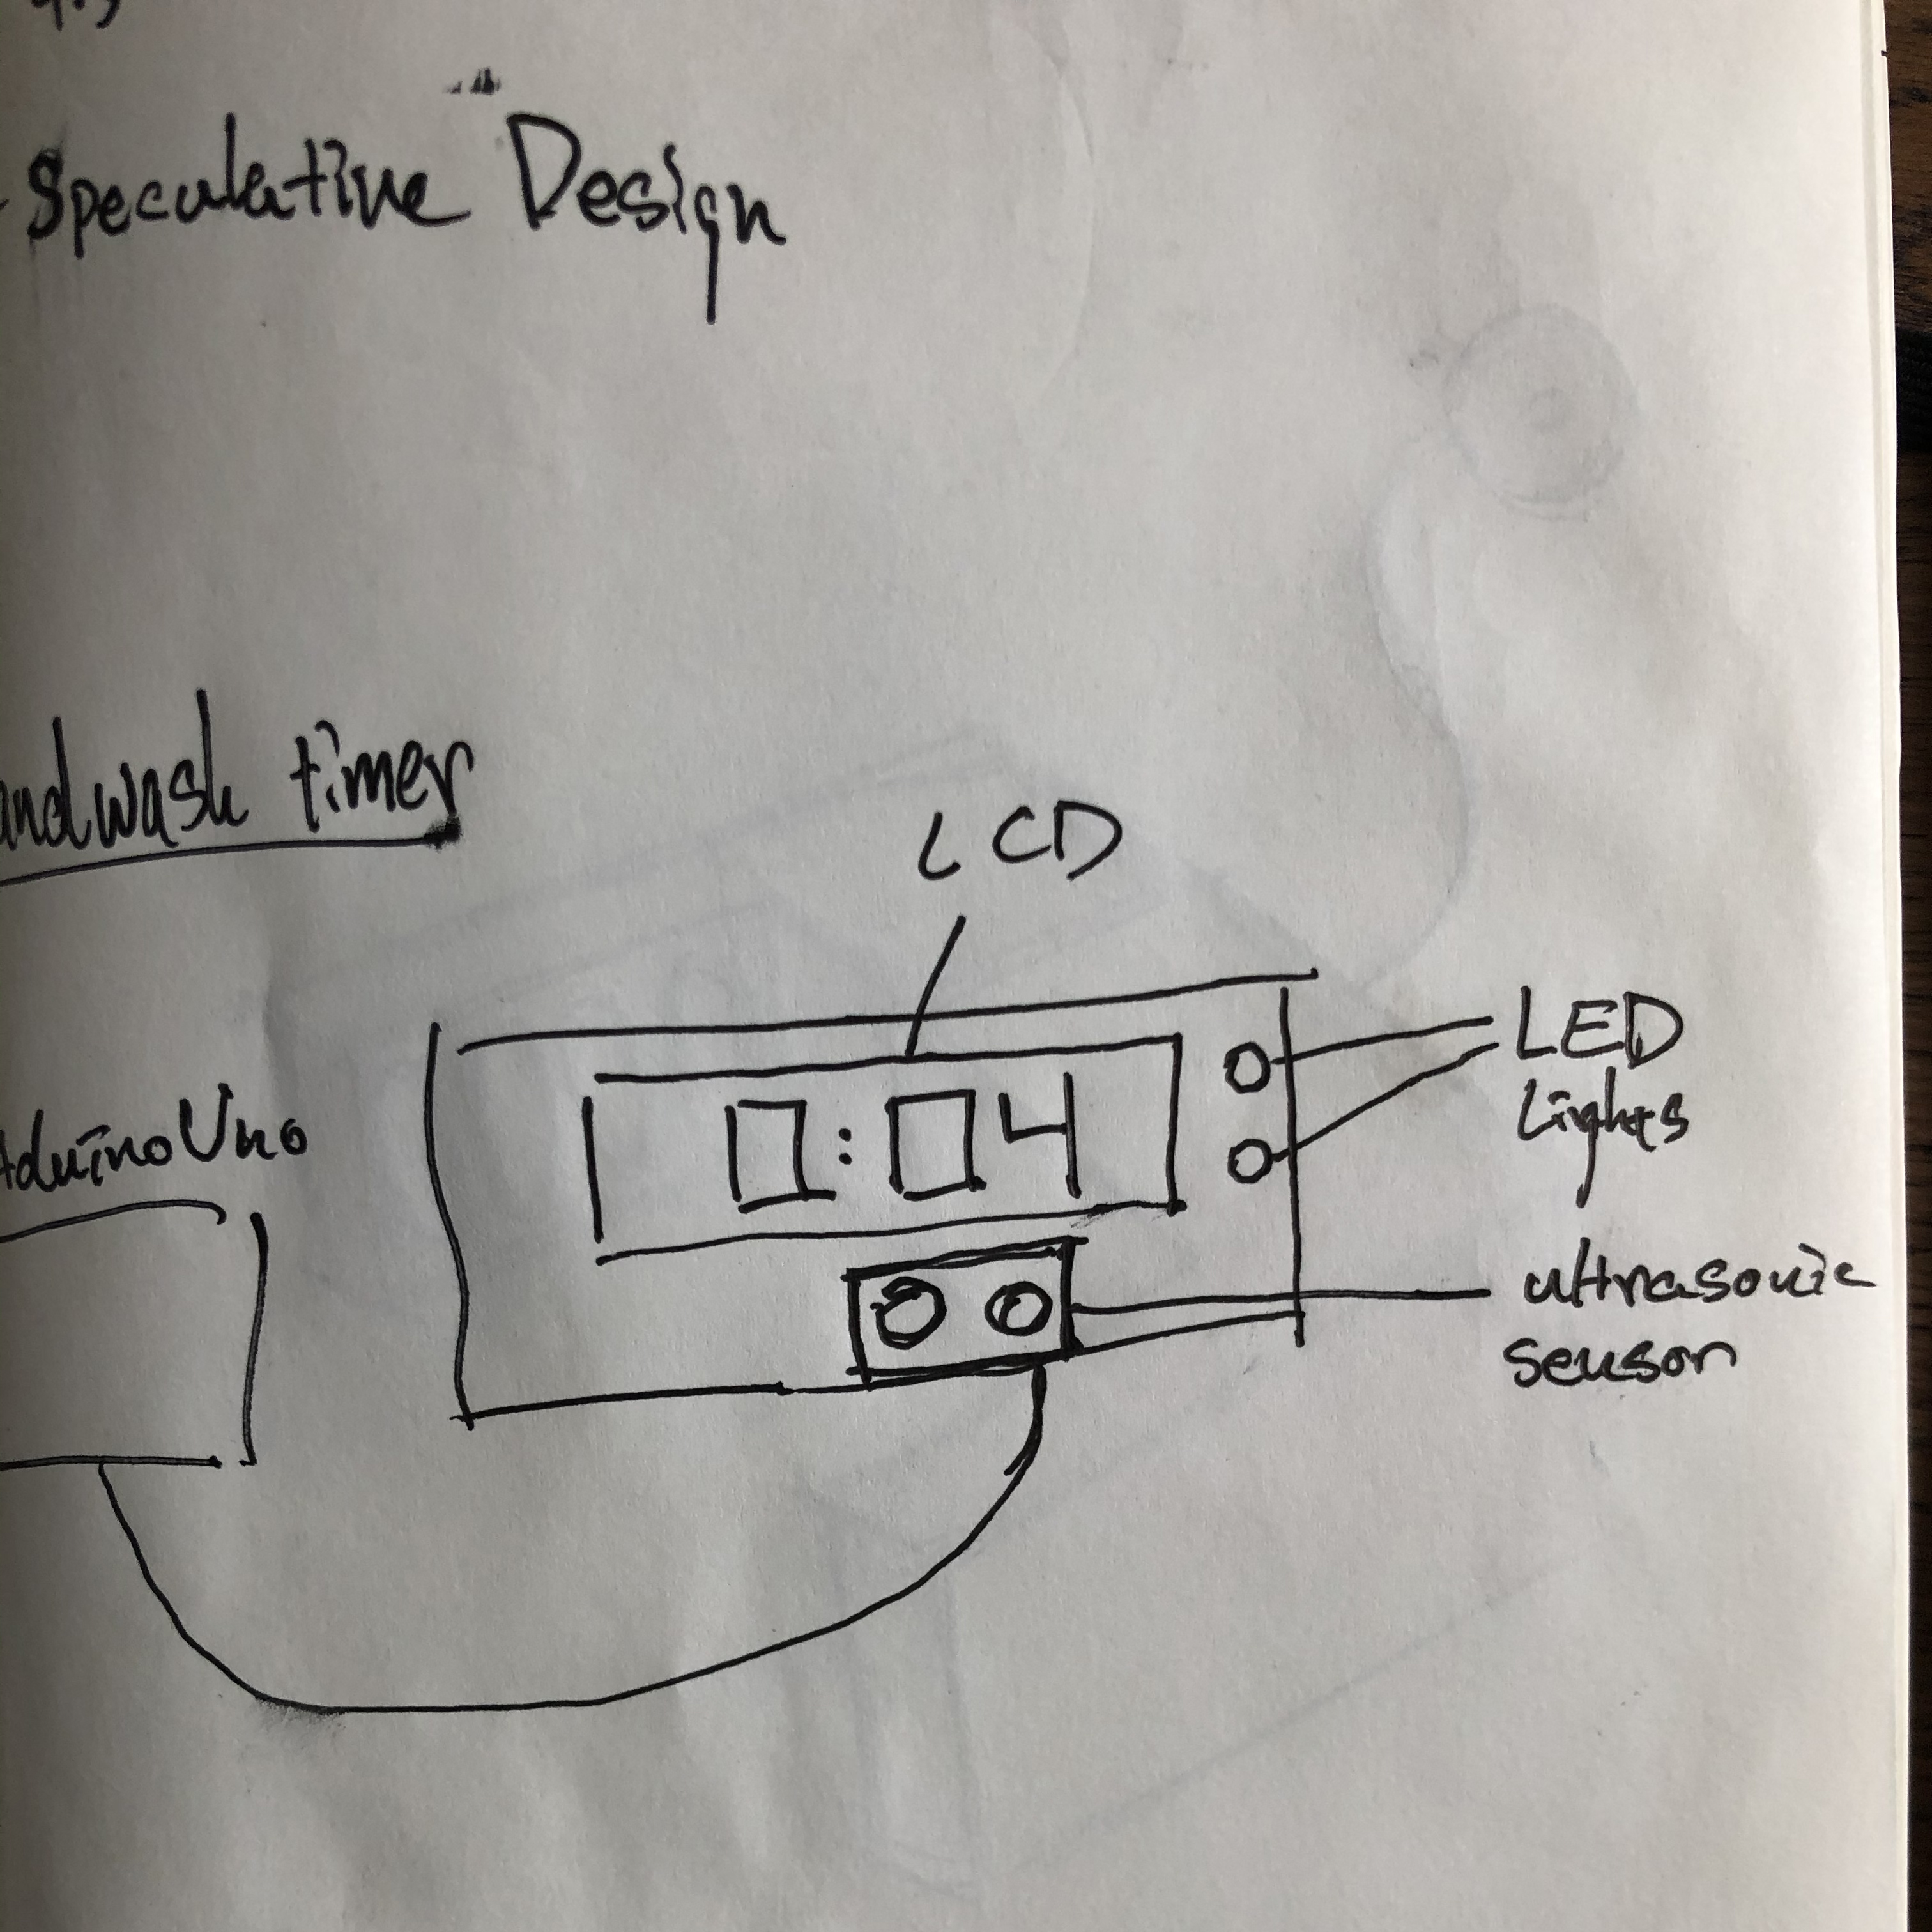 Speculative Design
andwash timer
LCD
0:04
LED
Lights
AduinoUno
ultrasonic
sensor